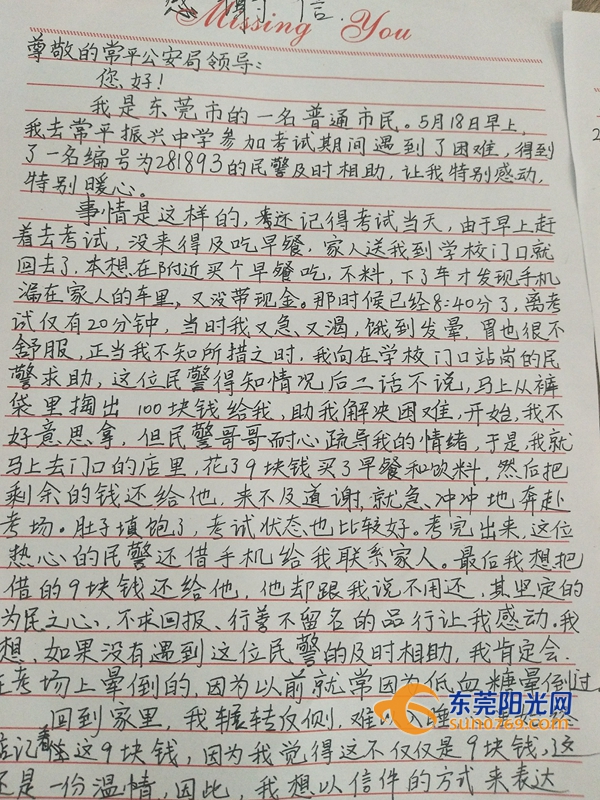 感谢信.
Missing You
尊敬的常平公安局领导:
您好!
我是东莞市的一名普通市民。5月18日早上,
我去常平振兴中学参加考试期间遇到了困难,得到
了一名编号为281893的民警及时相助,让我特别感动,
特别暖心。
事情是这样的,还记得考试当天,由于早上赶
着去考试,没来得及吃早餐.家人送我到学校门口就
回去了.本想在附近买个早餐吃,不料,下了车才发现手机
漏在家人的车里,又没带现金。那时候已经8:40分了,离考
试仅有20分钟,当时我又急、又渴,饿到发晕,胃也很不
舒服,正当我不知所措之时,我向在学校门口站岗的民
警求助,这位民警得知情况后二话不说,马上从裤
袋里掏出100块钱给我,助我解决困难,开始,我不
好意思拿,但民警哥哥耐心疏导我的情绪,于是,我就
马上去门口的店里,花了9块钱买了早餐和饮料,然后把
剩余的钱还给他,来不及道谢,就急、冲冲地奔赴
考场。肚子填饱了,考试状态也比较好。考完出来,这位
热心的民警还借手机给我联系家人。最后我想把
借的9块钱还给他,他却跟我说不用还,其坚定的
为民之心、不求回报、行善不留名的品行让我感动.我
想,如果没有遇到这位民警的及时相助,我肯定会
在考场上晕倒的,因为以前就常因为低血糖晕倒过.
回到家里,我辗转反侧,难以入睡
惦记着这9块钱,因为我觉得这不仅仅是9块钱,这
还是一份温情,因此,我想以信件的方式来表达
东莞阳光网
sun0769.com